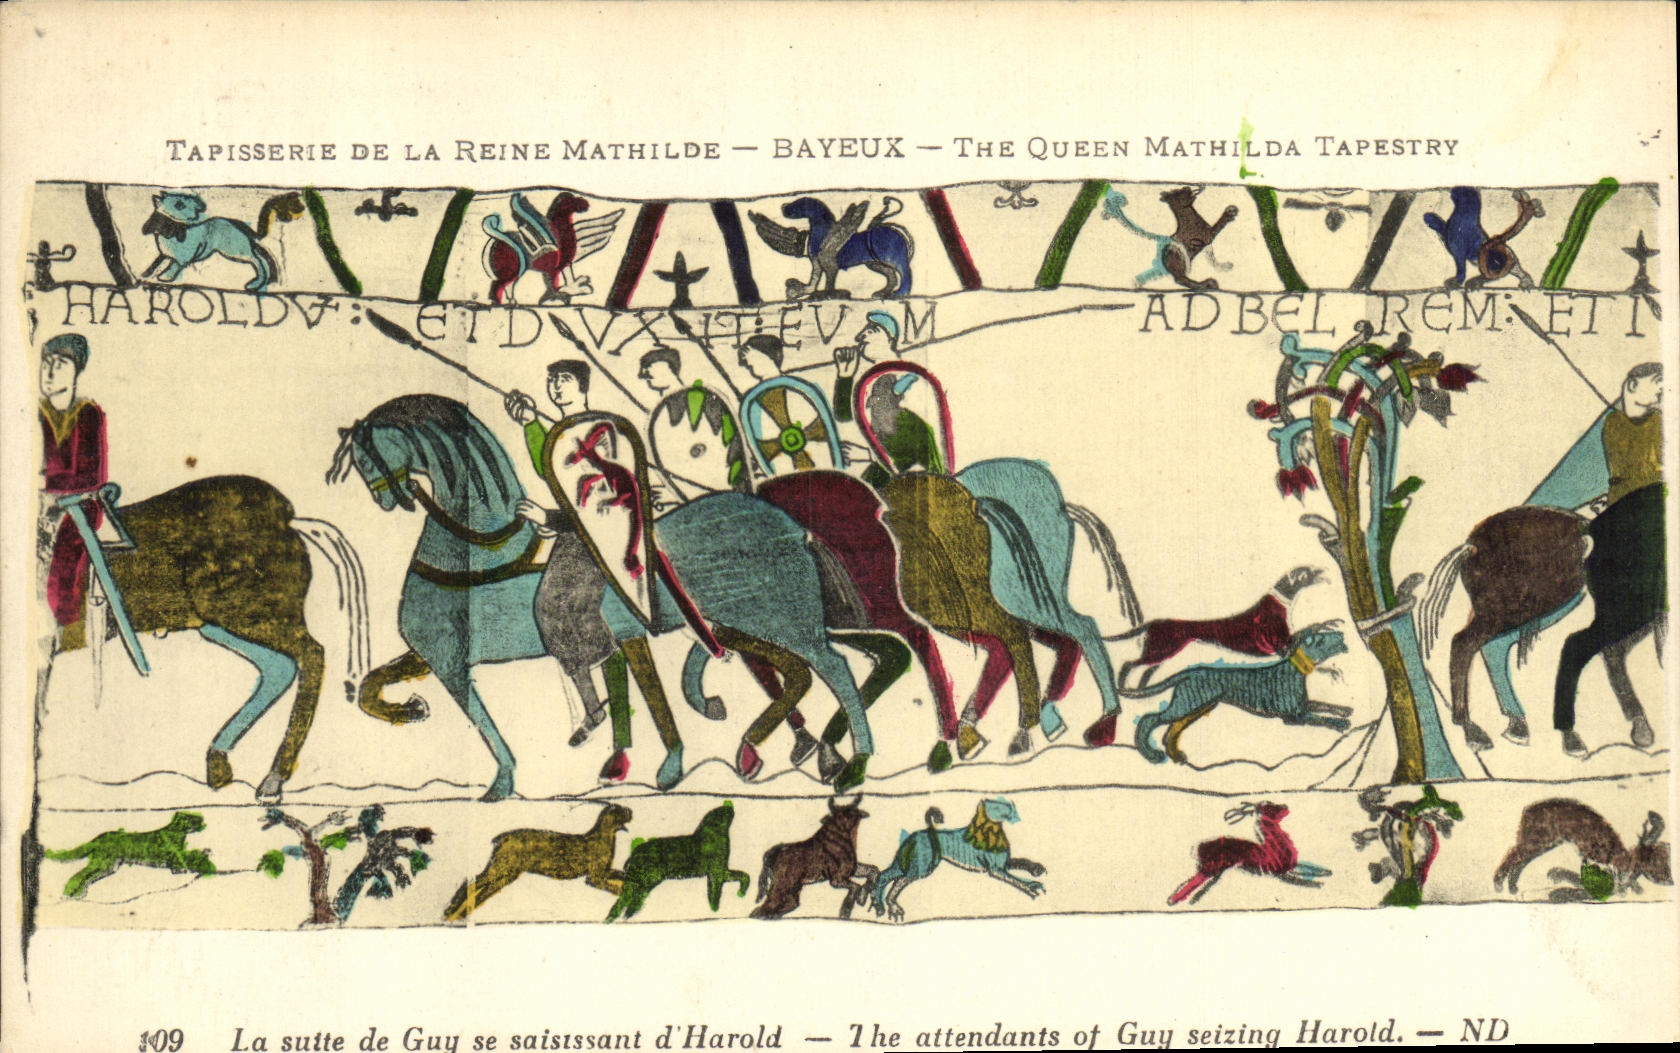 TAPISSERIE DE LA REINE MATHILDE — BAYEUX — THE QUEEN MATHILDA TAPESTRY
HAROLDV: ET DVXIT: EVM AD BEL REM: ET I
109 La suite de Guy se saisissant d'Harold — The attendants of Guy seizing Harold. — ND